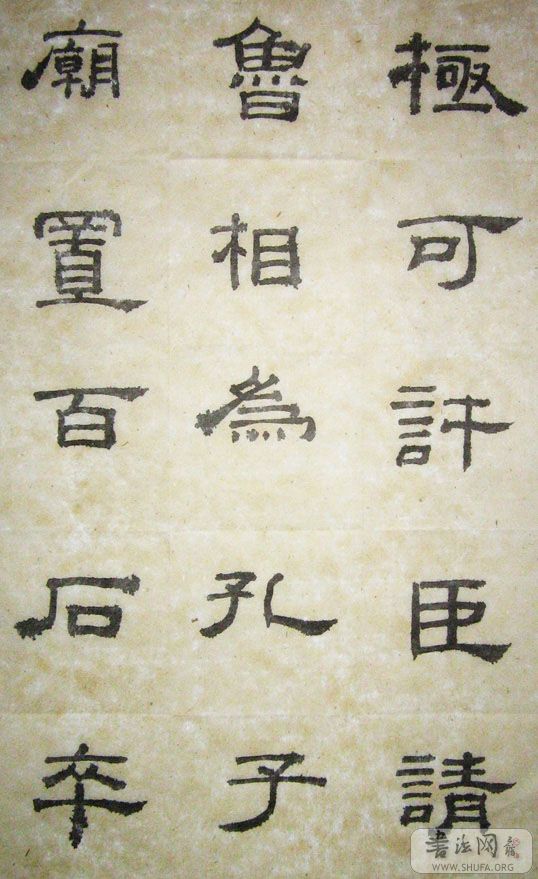 極可許臣請
魯相為孔子
廟置百石卒
書法网
WWW.SHUFA.ORG